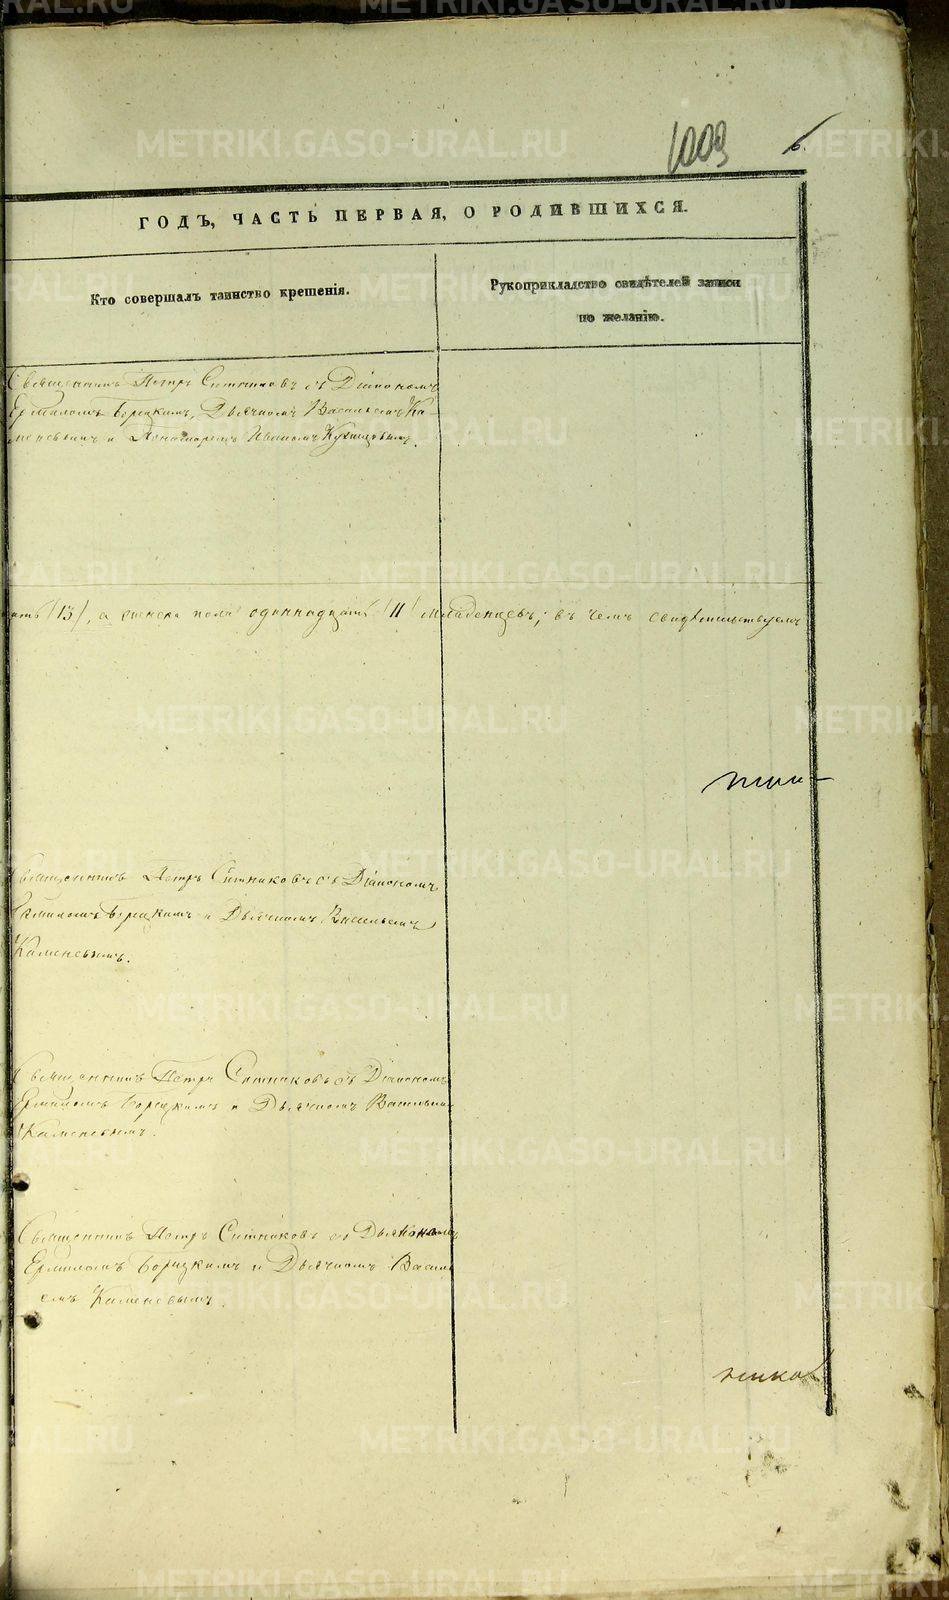 1009 6.
ГОДЪ, ЧАСТЬ ПЕРВАЯ, О РОДИВШИХСЯ.
Кто совершалъ таинство крещенія.
Рукоприкладство свидѣтелей записи
по желанію.
Священникъ Петръ Ситниковъ съ Діакономъ
Ермиломъ Борецкимъ, Дьячкомъ Васильемъ Ка-
меневымъ и Пономаремъ Иваномъ
/13/, а женска пола одиннадцать /11/ младенцевъ; въ чемъ свидѣтельствуемъ
Священникъ Петръ Ситниковъ съ Діакономъ
Ермиломъ Борецкимъ и Дьячкомъ Васильемъ
Каменевымъ.
Священникъ Петръ Ситниковъ съ Діакономъ
Ермиломъ Борецкимъ и Дьячкомъ Васильем
Каменевымъ.
Священникъ Петръ Ситниковъ съ Дьякономъ
Ермиломъ Борецкимъ и Дьячкомъ Василь
емъ Каменевымъ.
METRIKI.GASO-URAL.RU